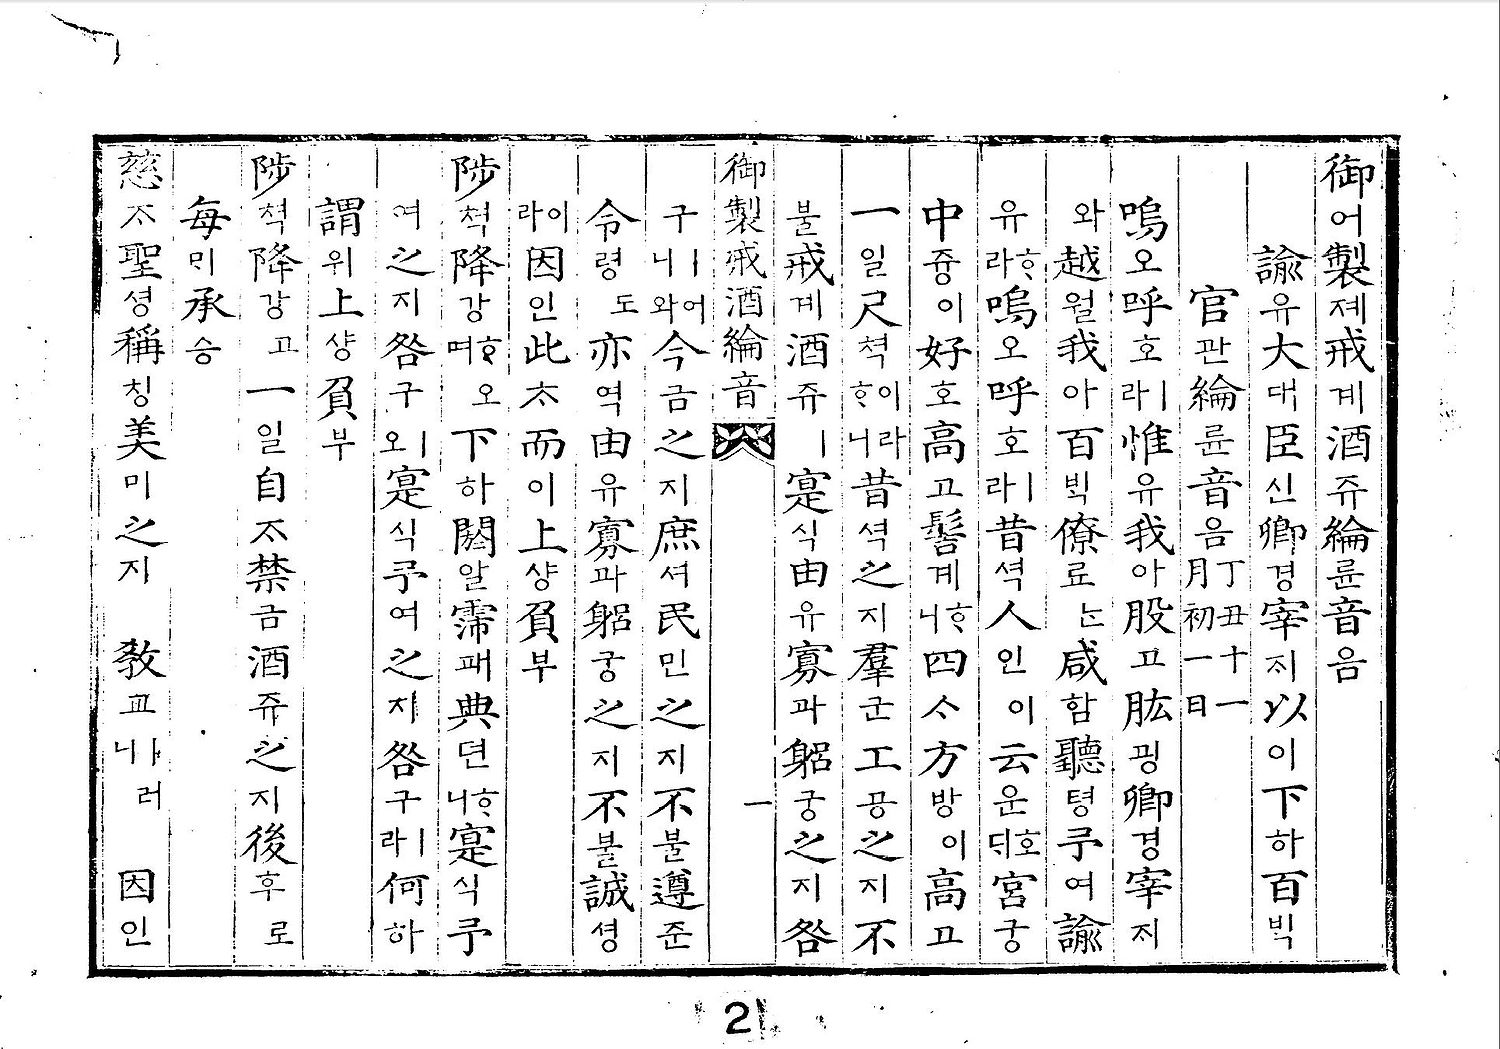 御어製졔戒계酒쥬綸륜音음
諭유大대臣신卿경宰ᄌᆡ以이下하百ᄇᆡᆨ
官관綸륜音음丁丑十一月初一日
嗚오呼호ㅣ라惟유我아股고肱굉卿경宰ᄌᆡ
와越월我아百ᄇᆡᆨ僚료ᄂᆞᆫ咸함聽텽予여諭
유ᄒᆞ라嗚오呼호ㅣ라昔셕人인이云운호ᄃᆡ宮궁
中듕이好호高고髻계ᄒᆞ니四ᄉᆞ方방이高고
一일尺쳑이라ᄒᆞ니昔셕之지羣군工공之지不
불戒계酒쥬ㅣ寔식由유寡과躬궁之지咎
御製戒酒綸音 一
구ㅣ어니와今금之지庶셔民민之지不불遵준
令령도亦역由유寡과躬궁之지不불誠셩
이라因인此ᄎᆞ而이上샹負부
陟쳑降강ᄒᆞ오며下하閼알霈패典뎐ᄒᆞ니寔식予
여之지咎구ㅣ오寔식予여之지咎구ㅣ라何하
謂위上샹負부
陟쳑降강고一일自ᄌᆞ禁금酒쥬之지後후로
每ᄆᆡ承승
慈ᄌᆞ聖셩稱칭美미之지 敎교ㅣ러니 因인
2